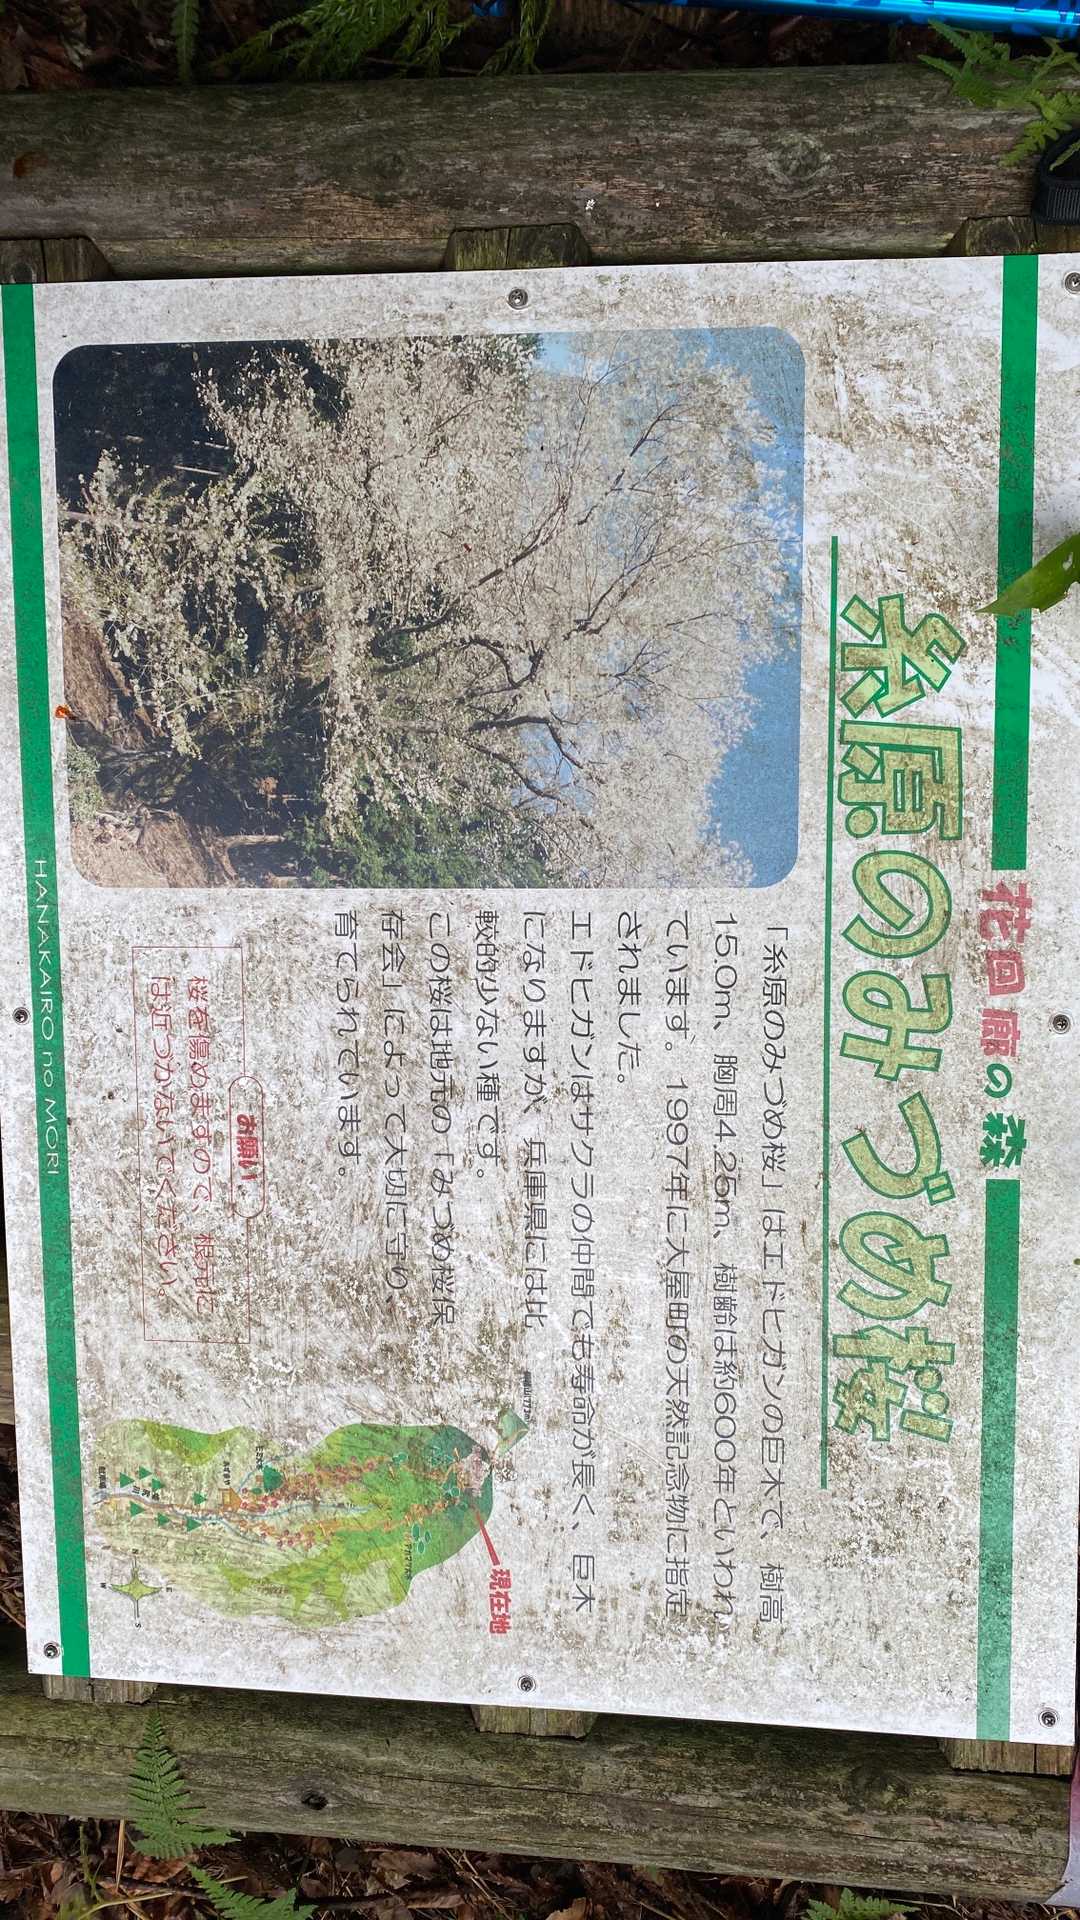 花回廊の森
糸原のみづめ桜
「糸原のみづめ桜」はエドヒガンの巨木で、樹高
15.0m、胸周4.25m、樹齢は約600年といわれ
ています。1997年に大屋町の天然記念物に指定
されました。
エドヒガンはサクラの仲間でも寿命が長く、巨木
になりますが、兵庫県には比
較的少ない種です。
この桜は地元の「みづめ桜保
存会」によって大切に守り、
育てられています。
お願い
桜を傷めますので、根元に
は近づかないでください。
現在地
N
E
W
S
HANAKAIRO no MORI